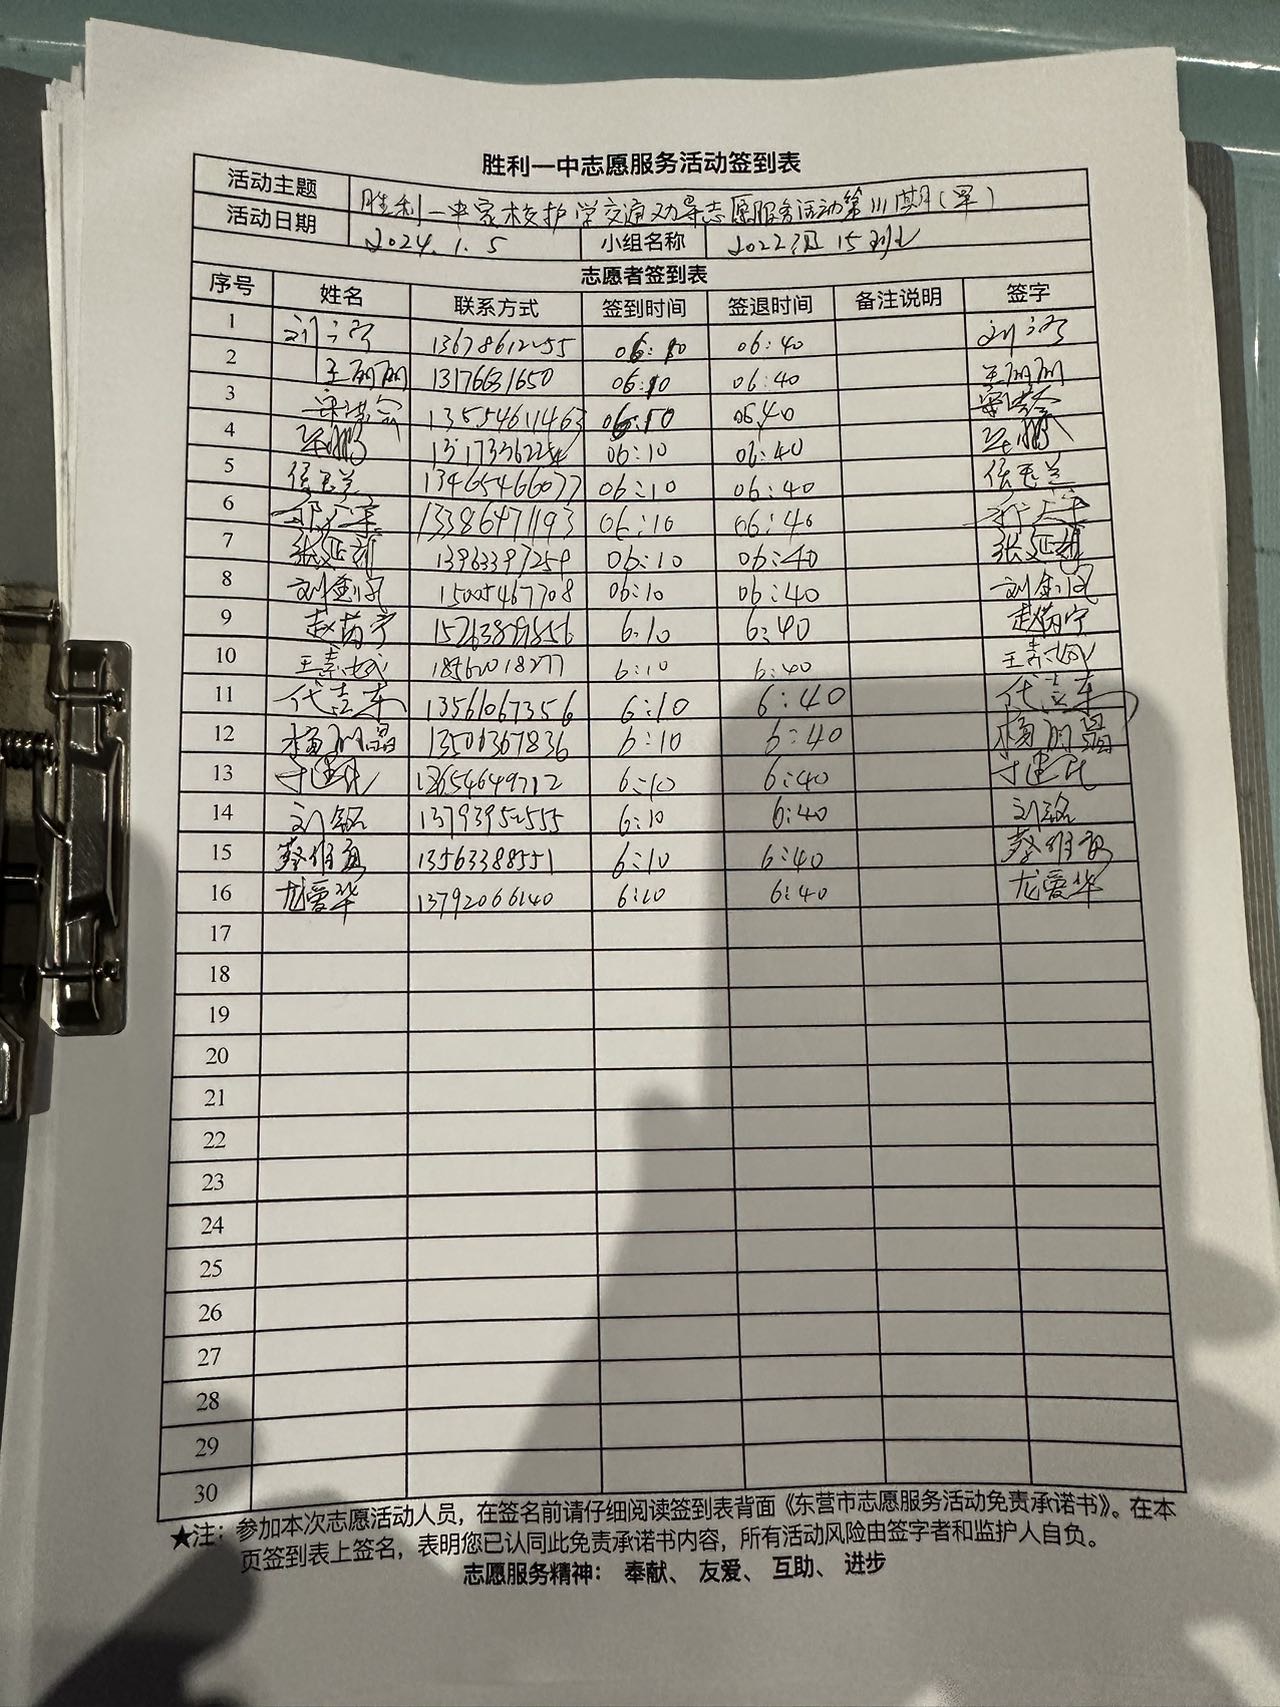 胜利一中志愿服务活动签到表
活动主题 胜利一中家校护学交通劝导志愿服务活动第111期(早)
活动日期 2024.1.5 小组名称 2022级15班
志愿者签到表
序号 姓名 联系方式 签到时间 签退时间 备注说明 签字
1 刘 13678612255 06:10 06:40 刘
2 王丽丽 13176631650 06:10 06:40 王丽丽
3 13554611463 06:10 06:40
4 06:10 06:40
5 任玉兰 13465466077 06:10 06:40 任玉兰
6 13386471193 06:10 06:40
7 张延 13963397259 06:10 06:40 张延
8 刘剑风 15005467708 06:10 06:40 刘剑风
9 赵苗宁 6:10 6:40 赵苗宁
10 王素 18562018277 6:10 6:40 王素
11 代志东 13561067356 6:10 6:40 代志东
12 杨丽晶 13506367836 6:10 6:40 杨丽晶
13 6:10 6:40
14 刘铭 13793952555 6:10 6:40 刘铭
15 蔡维 13563388551 6:10 6:40 蔡维
16 龙爱华 13792066140 6:10 6:40 龙爱华
17
18
19
20
21
22
23
24
25
26
27
28
29
30
★注：参加本次志愿活动人员，在签名前请仔细阅读签到表背面《东营市志愿服务活动免责承诺书》。在本
页签到表上签名，表明您已认同此免责承诺书内容，所有活动风险由签字者和监护人自负。
志愿服务精神： 奉献、 友爱、 互助、 进步